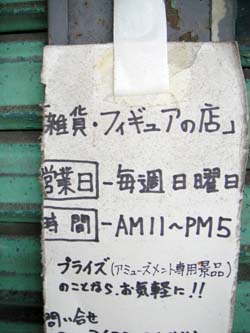 「雑貨・フィギュアの店」
営業日-毎週日曜日
時間-AM11～PM5
プライズ(アミューズメント専用景品)
のことなら、お気軽に!!
問い合せ